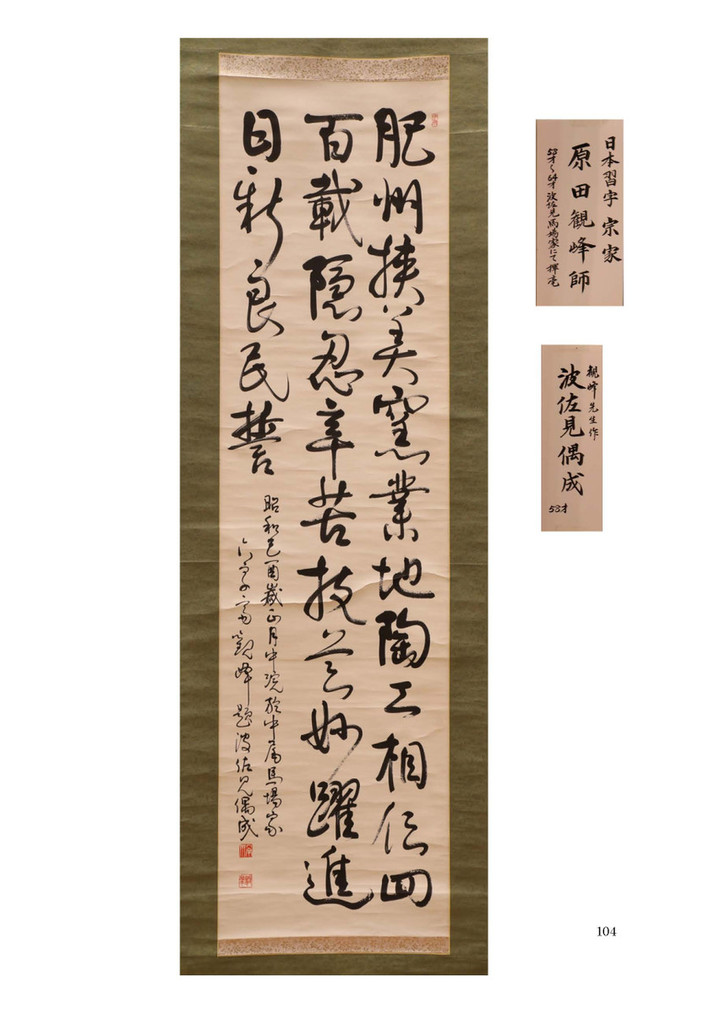 肥州挟美窯業地陶工相伝四
百載隠忍辛苦技芸妙躍進
日新良民誓
昭和己酉歳正月中浣於中尾馬場家
觀峰題波佐見偶成
日本習字宗家
原田観峰師
53才〜64才波佐見馬場家にて揮毫
観峰先生作
波佐見偶成
53才
104